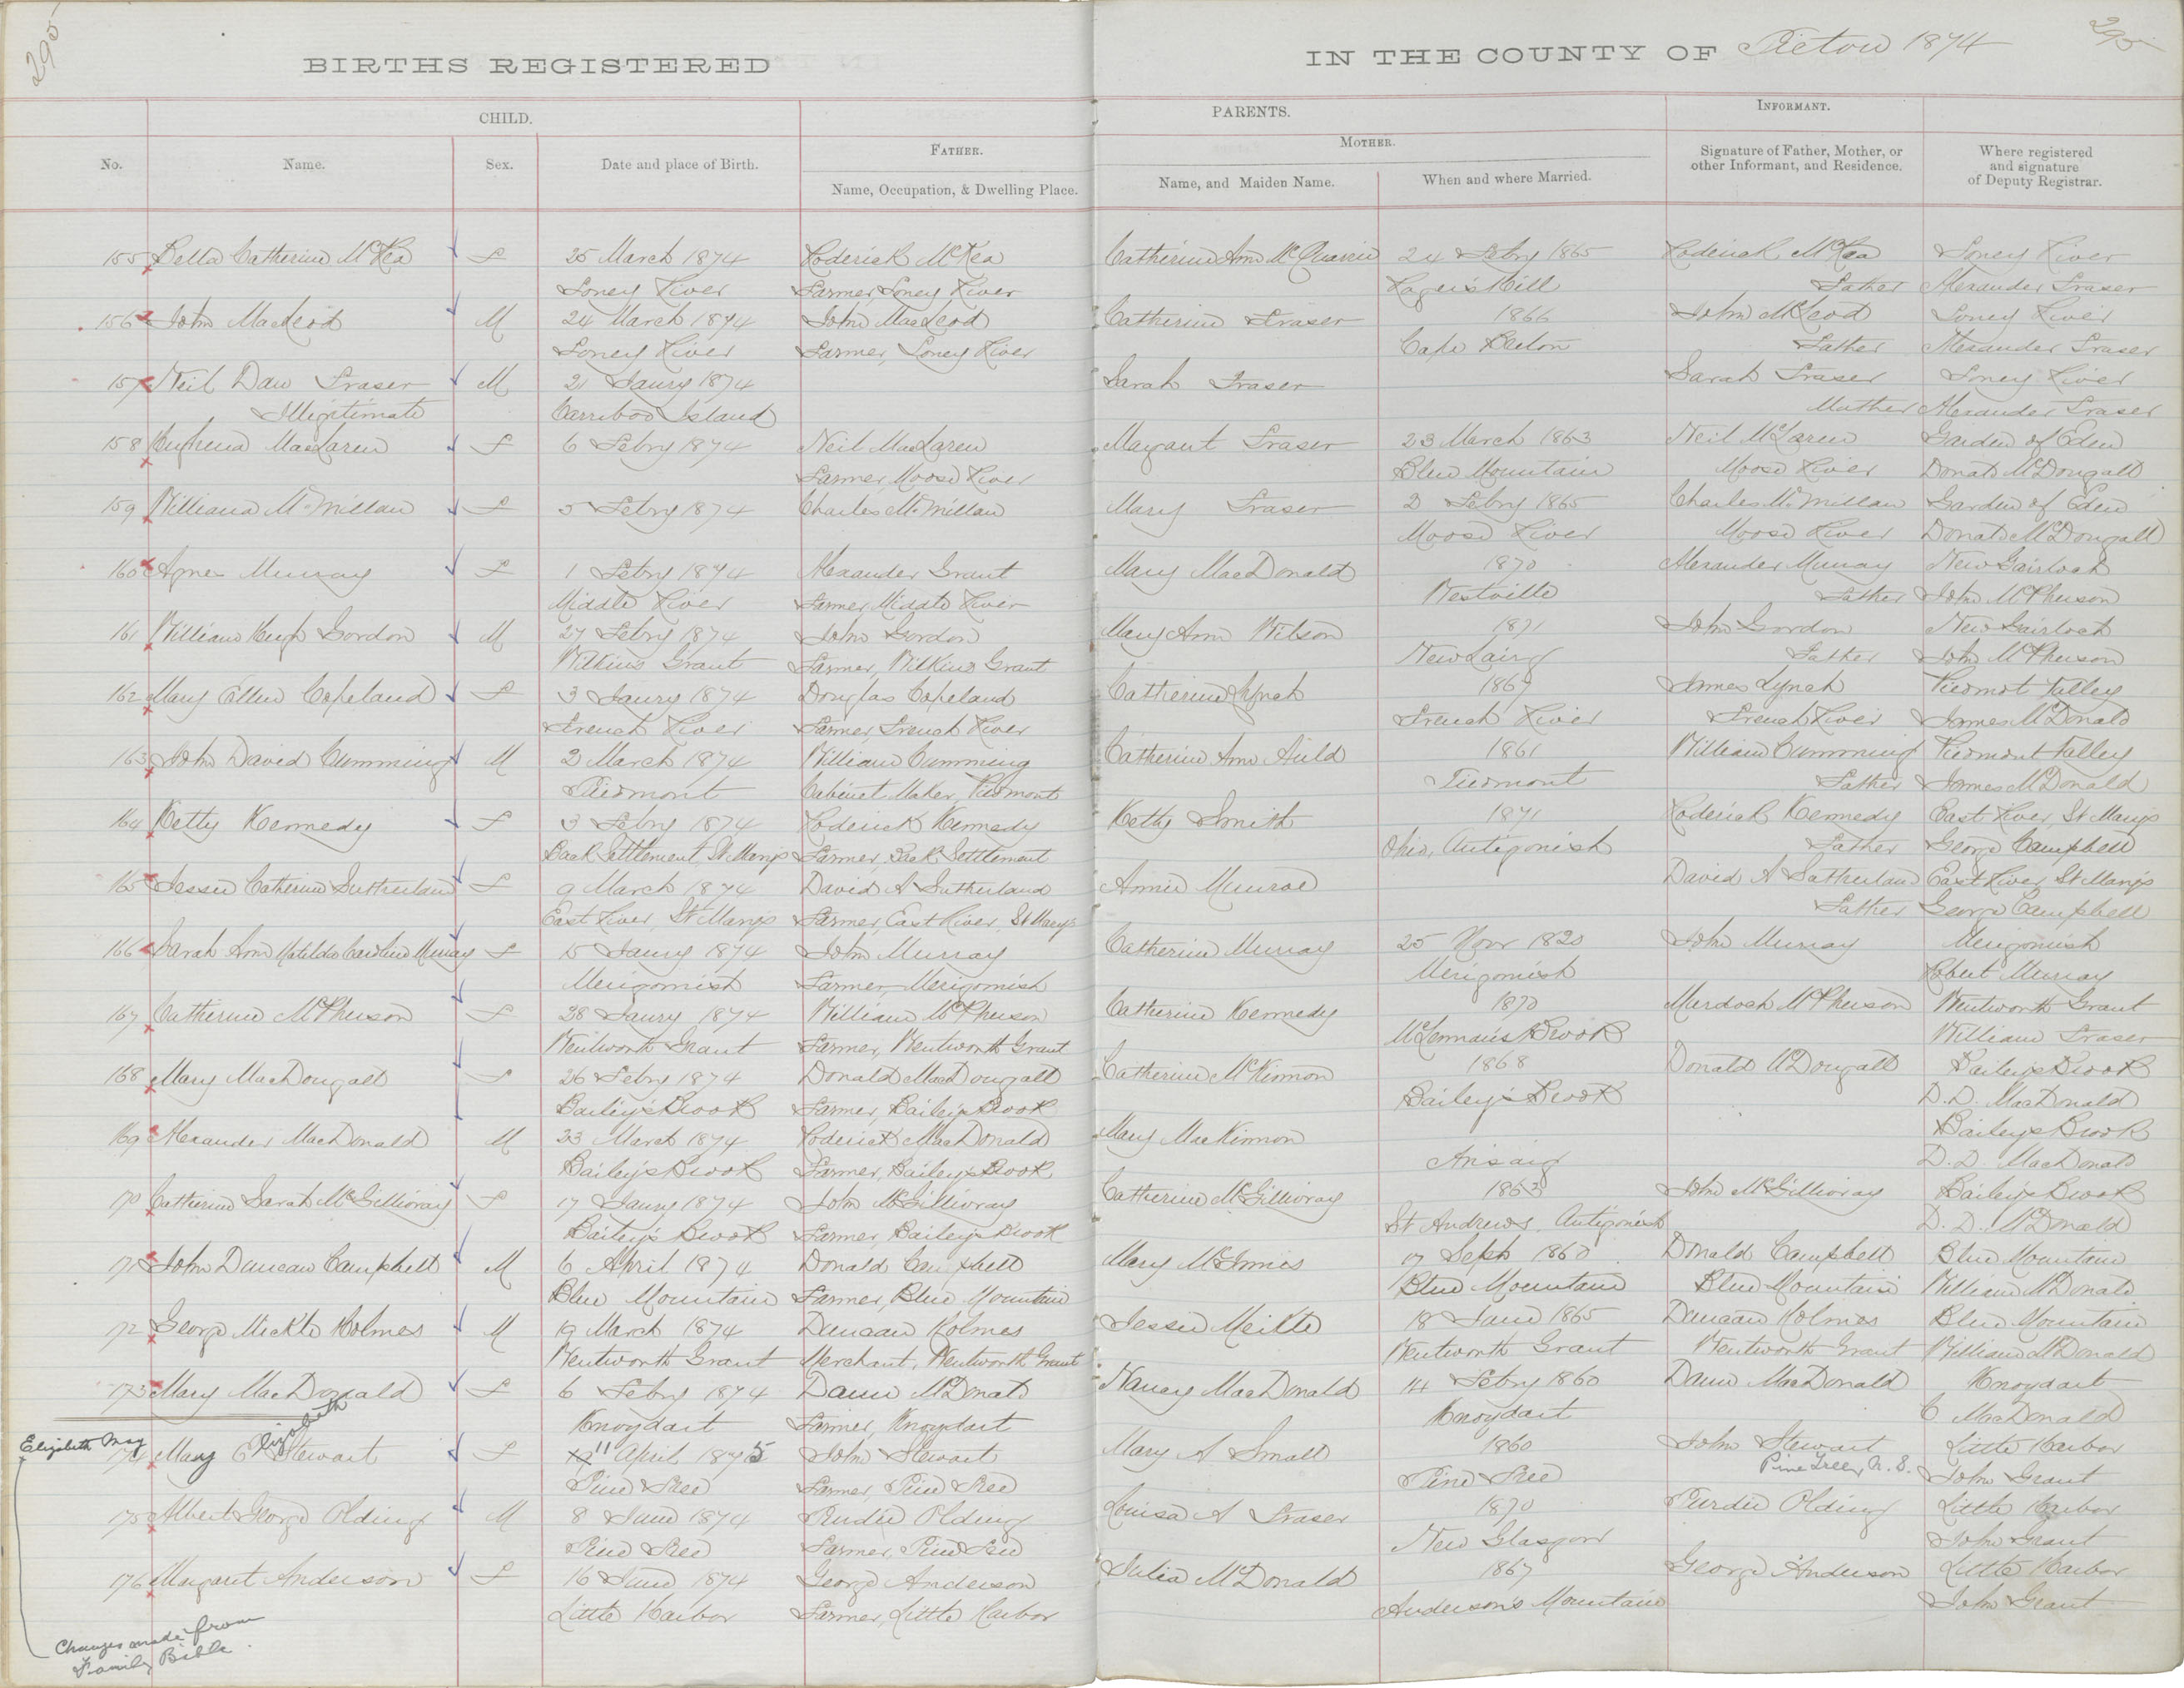 295
295
BIRTHS REGISTERED
IN THE COUNTY OF Pictou 1874
CHILD.
PARENTS.
INFORMANT.
No.
Name.
Sex.
Date and place of Birth.
FATHER.
Name, Occupation, & Dwelling Place.
MOTHER.
Name, and Maiden Name.
When and where Married.
Signature of Father, Mother, or
other Informant, and Residence.
Where registered
and signature
of Deputy Registrar.
155 Bella Catherine McKea F 25 March 1874 Roderick McKea Catherine Ann McQuarrie 24 Febry 1865 Roderick McKea Toney River
Toney River Farmer, Toney River Roger's Hill Father Alexander Fraser
156 John MacLeod M 24 March 1874 John MacLeod Catherine Fraser 1866 John McLeod Toney River
Toney River Farmer, Toney River Cape Breton Father Alexander Fraser
157 Neil Dan Fraser M 21 Jaury 1874 Sarah Fraser Sarah Fraser Toney River
Illigitimate Carriboo Island Mother Alexander Fraser
158 MacLaren F 6 Febry 1874 Neil MacLaren Margaret Fraser 23 March 1863 Neil McLaren Garden of Eden
Farmer, Moose River Blue Mountain Moose River Donald McDougall
159 Williana McMillan F 5 Febry 1874 Charles McMillan Mary Fraser 2 Febry 1865 Charles McMillan Garden of Eden
Moose River Moose River Donald McDougall
160 Agnes Murray F 1 Febry 1874 Alexander Grant Mary MacDonald 1870 Alexander Murray New Gairloch
Middle River Farmer, Middle River Westville Father John McPherson
161 William Hugh Gordon M 27 Febry 1874 John Gordon Mary Ann Wilson 1871 John Gordon New Gairloch
Wilkins Grant Farmer, Wilkins Grant New Lairg Father John McPherson
162 Mary Ellen Copeland F 3 Jaury 1874 Douglas Copeland Catherine Lynch 1867 James Lynch Piedmont Valley
French River Farmer, French River French River French River James McDonald
163 John David Cumming M 2 March 1874 William Cumming Catherine Ann Auld 1861 William Cumming Piedmont Valley
Piedmont Cabinet Maker, Piedmont Piedmont Father James McDonald
164 Ketty Kennedy F 3 Febry 1874 Roderick Kennedy Ketty Smith 1871 Roderick Kennedy East River, St Marys
Back Settlement, St Marys Farmer, Back Settlement Ohio, Antigonish Father George Campbell
165 Jessie Catherine Sutherland F 9 March 1874 David A Sutherland Annie Munroe David A Sutherland East River St Marys
East River, St Marys Farmer, East River, St Marys Father George Campbell
166 Sarah Ann Matilda Caroline Murray F 15 Jaury 1874 John Murray Catherine Murray 25 Novr 1820 John Murray Merigomish
Merigomish Farmer, Merigomish Merigomish Robert Murray
167 Catherine McPherson F 28 Jaury 1874 William McPherson Catherine Kennedy 1870 Murdoch McPherson Wentworth Grant
Wentworth Grant Farmer, Wentworth Grant McLennan's Brook William Fraser
168 Mary MacDougall F 26 Febry 1874 Donald MacDougall Catherine McKinnon 1868 Donald McDougall Bailey's Brook
Bailey's Brook Farmer, Bailey's Brook Bailey's Brook D. D. MacDonald
169 Alexander MacDonald M 23 March 1874 Roderick MacDonald Mary MacKinnon Bailey's Brook
Bailey's Brook Farmer, Bailey's Brook Arisaig D. D MacDonald
170 Catherine Sarah McGillivray F 17 Jaury 1874 John McGillivray Catherine McGillivray 1863 John McGillivray Bailey's Brook
Bailey's Brook Farmer, Bailey's Brook St Andrews, Antigonish D. D. McDonald
171 John Duncan Campbell M 6 April 1874 Donald Campbell Mary McInnis 17 Sept 1860 Donald Campbell Blue Mountain
Blue Mountain Farmer, Blue Mountain Blue Mountain Blue Mountain William McDonald
172 George Meikle Holmes M 19 March 1874 Duncan Holmes Jessie Meikle 18 June 1865 Duncan Holmes Blue Mountain
Wentworth Grant Merchant, Wentworth Grant Wentworth Grant Wentworth Grant William McDonald
173 Mary MacDonald F 6 Febry 1874 McDonald Nancy MacDonald 14 Febry 1860 MacDonald Knoydart
Knoydart Farmer, Knoydart Knoydart C MacDonald
Elizabeth May
174 Mary Elizabeth Stewart F 11 April 1875 John Stewart Mary A Small 1860 John Stewart Little Harbor
Pine Tree Farmer, Pine Tree Pine Tree Pine Tree, N. S. John Grant
175 Albert George Olding M 8 June 1874 Purdie Olding Louisa A Fraser 1870 Purdie Olding Little Harbor
Pine Tree Farmer, Pine Tree New Glasgow John Grant
176 Margaret Anderson F 16 June 1874 George Anderson Julia McDonald 1867 George Anderson Little Harbor
Little Harbor Farmer, Little Harbor Anderson's Mountain John Grant
Changes made from
Family Bible.